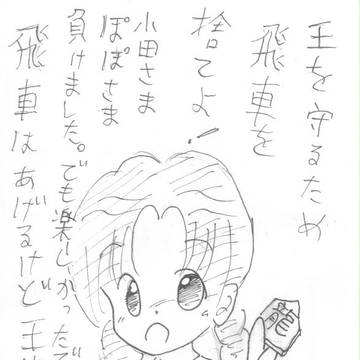 王を守るため
飛車を
捨てよ!
小田さま
ぽぽさま
負けました。でも楽しかったで
飛車はあげるけど王